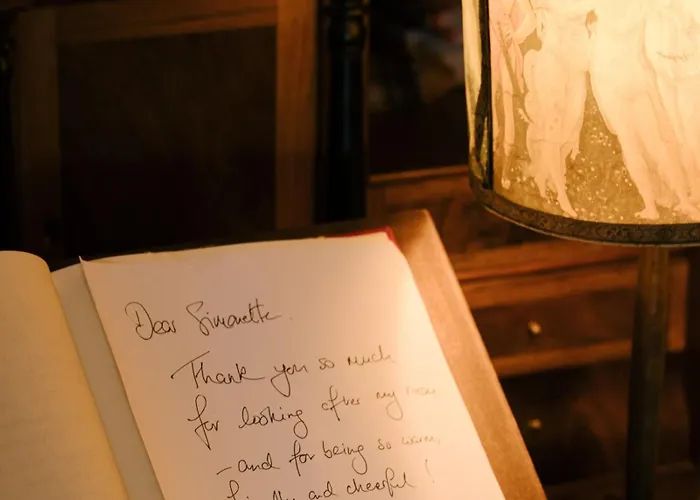 Dear Simonette.
Thank you so much
for looking after my
- and for being so warm,
friendly and cheerful!